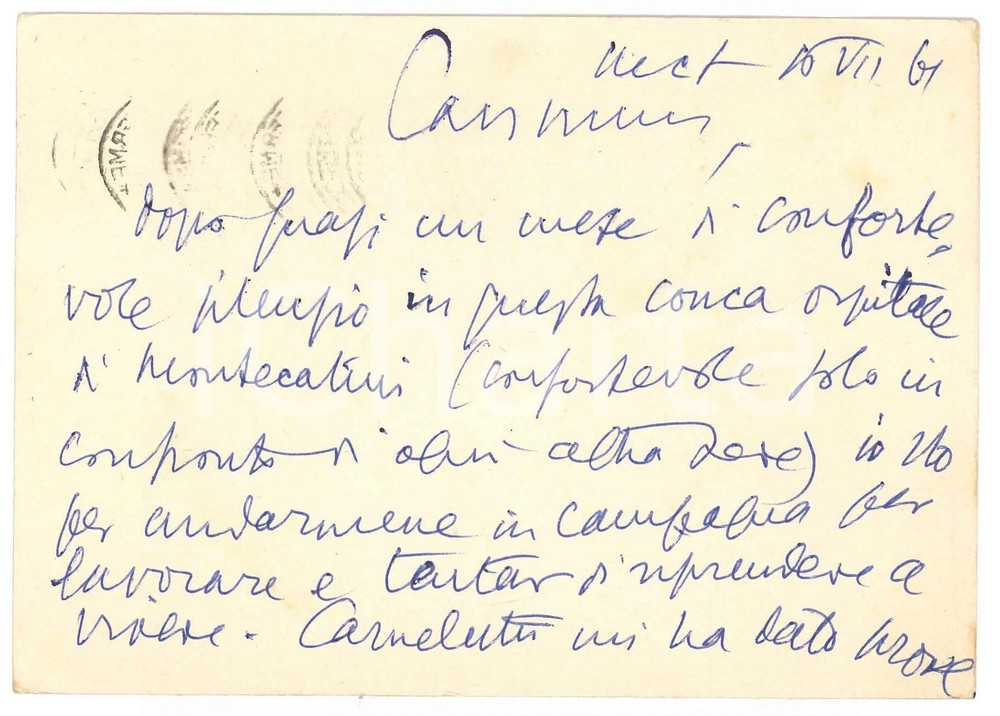 Mect 10 VII 61
Carissimi,
dopo quasi un mese di conforte,
vole silenzio in questa conca ospitale
di Montecatini (confortevole solo in
confronto di ogni altra sede) io sto
per andarmene in campagna per
lavorare e tentar di riprendere a
vivere. Carnelutti mi ha dato prove